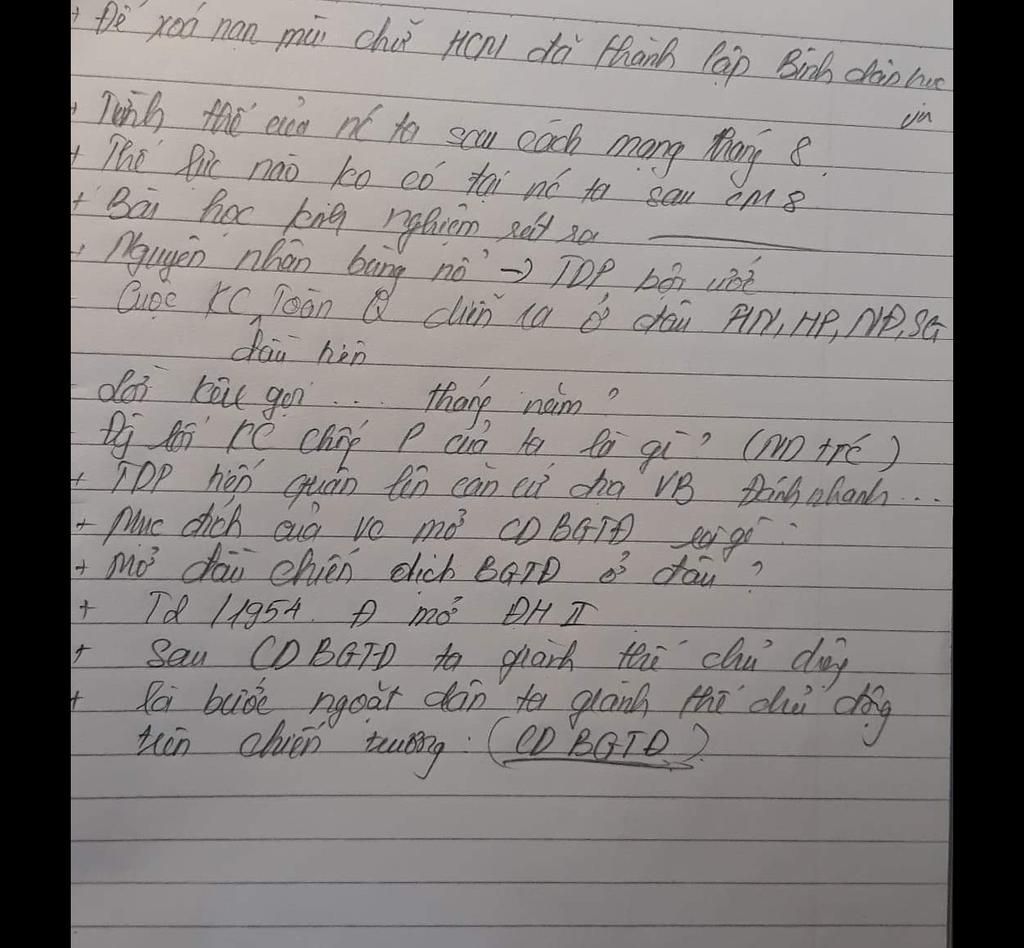 + Để xoá nạn mùi chữ HCM đã thành lập Bình dân học
vụ
+ Tình thế của nc ta sau cách mạng tháng 8.
+ Thế lực nào ko có tại nc ta sau CM 8
+ Bài học kinh nghiệm rút ra
+ Nguyên nhân bùng nổ → TDP bội ước
- Cuộc KC Toàn Q diễn ra ở đâu HN, HP, NĐ, SG
đầu tiên
- Lời kêu gọi ... tháng năm?
- Đg lối KC chống P của ta là gì? (ND trc)
+ TDP tiến quân lên căn cứ địa VB Đánh nhanh...
+ Mục đích của vc mở CDBGTĐ là gì?
+ Mở đầu chiến dịch BGTĐ ở đâu?
+ /1954. Đ mở ĐH II
+ Sau CDBGTĐ ta giành thế chủ động
+ là bước ngoặt dân ta giành thế chủ động
trên chiến trường: (CD BGTĐ)